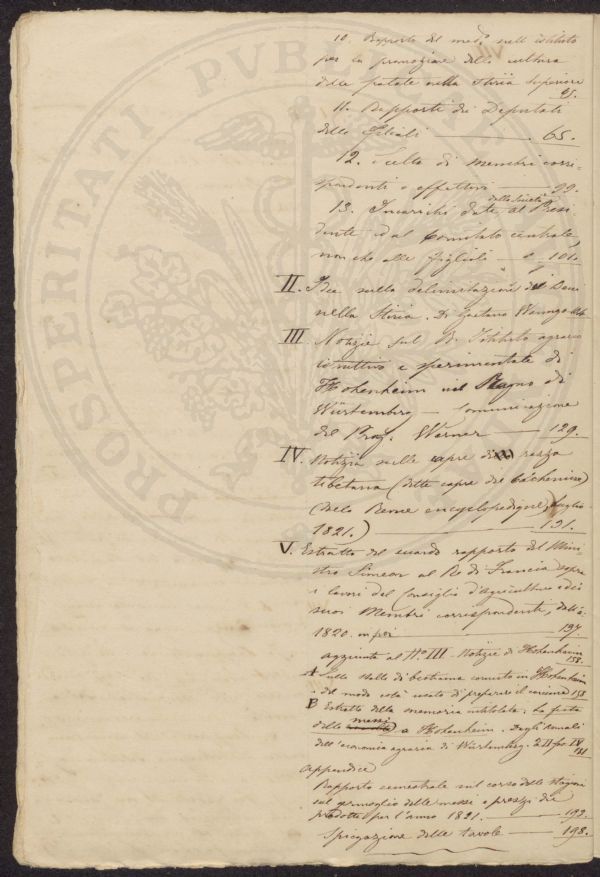 10. Rapporto del med.º nell'istituto
per la promozione della cultura
delle patate nella Stiria Superiore
25.
11. Rapporti dei Deputati
delle Filiali 65.
12. Scelta di membri corri-
spondenti o effettivi 99.
13. Incarichi date al Presi-
della Società
dente e dal Comitato centrale,
non che alle figliali 101.
II. Idee sulla delimitazione dei Beni
nella Stiria. Di Gaetano
III Notizie sul R. Istituto agrario
istruttivo e sperimentale di
Hohenheim nel Regno di
Würtemberg — Comunicazione
del Prof. Werner 129.
IV. Notizia sulle capre di razza
tibetana (dette capre del Cachemire)
(dalla Revue encyclopedique, luglio
1821.) 131.
V. Estratto del secondo rapporto del Mini-
stro Simeon al Re di Francia sopra
i lavori del Consiglio d'agricoltura e dei
suoi Membri corrispondenti, dall'a.
1820. in poi 197.
aggiunta al Nº. III. Notizie di Hohenheim
158.
A Sulla stalla di bestiame cornuto in Hohenheim
e del modo colà usato di preparare il concime 158
B Estratto della memoria intitolata: La festa
delle messi a Hohenheim. Dagli annali
dell'economia agraria di Würtemberg. 2 II fas. IV
181
appendice
Rapporto semestrale sul corso delle stagioni
sul germoglio delle messi e prezzi dei
prodotti per l'anno 1821. 192.
Spiegazione delle tavole 198.
PROSPERITATI PUBLICAE